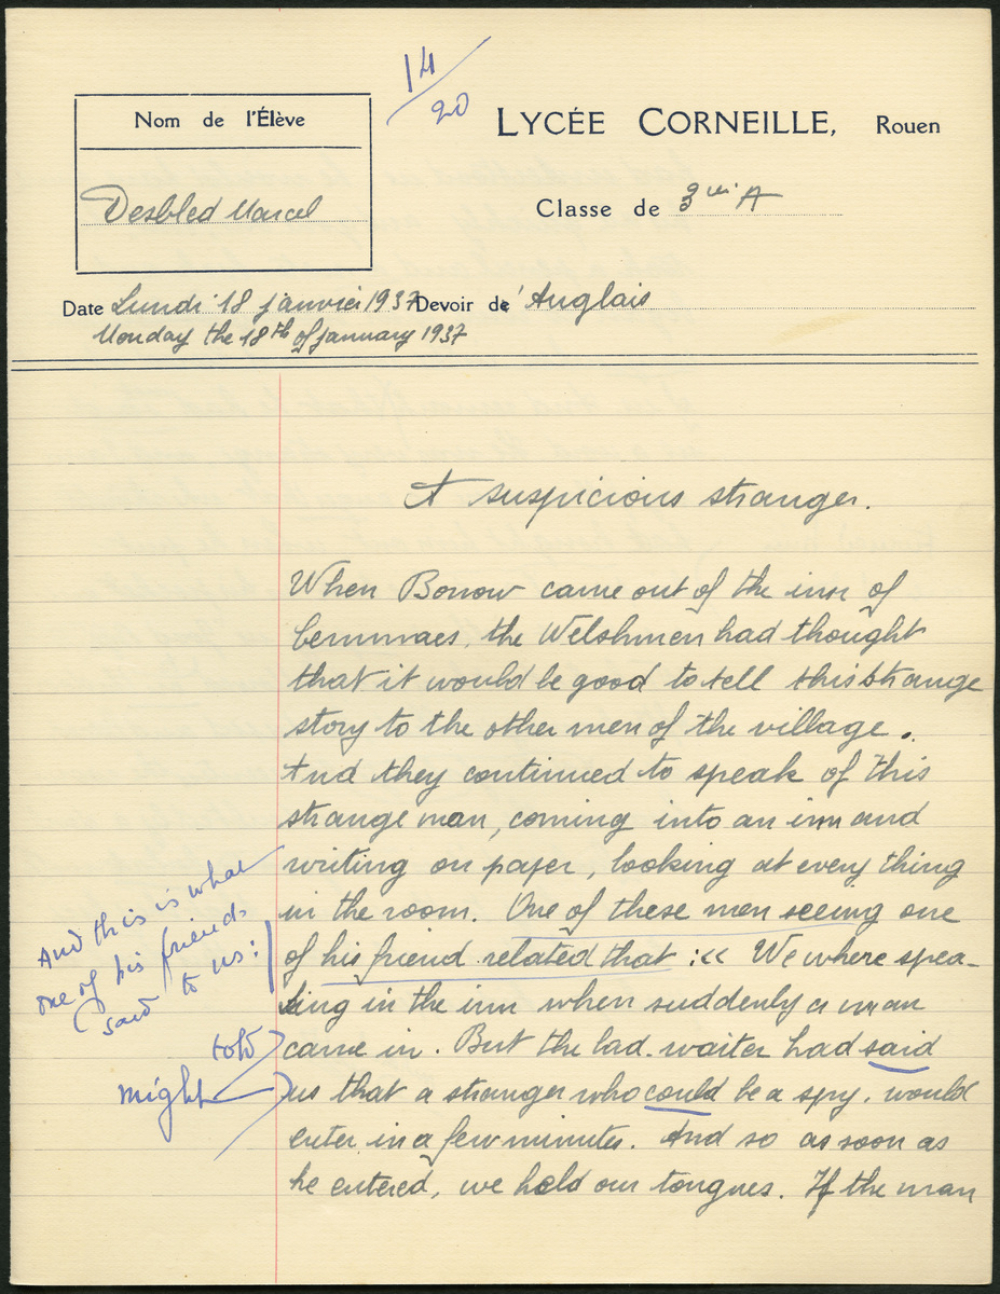 14/20
Nom de l'Élève
LYCÉE CORNEILLE, Rouen
Desbled Marcel
Classe de 3ème A
Date Lundi 18 janvier 1937 Devoir de' Anglais
Monday the 18th of january 1937
A suspicious stranger.
When Borrow came out of the inn of
Cemmaes, the Welshmen had thought
that it would be good to tell this strange
story to the other men of the village.
And they continued to speak of this
strange man, coming into an inn and
writing on paper, looking at every thing
in the room. One of these men seeing one
of his friend related that : << We where spea-
king in the inn when suddenly a man
came in. But the lad. waiter had said
us that a stranger who could be a spy, would
enter in a few minutes. And so as soon as
he entered, we held our tongues. If the man
And this is what
one of his friends
said to us :
told
might